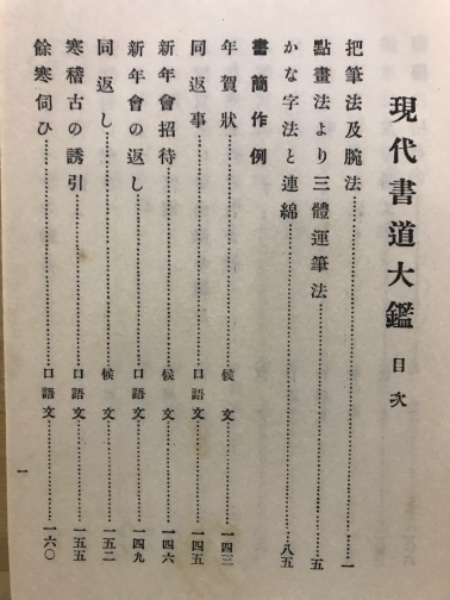 現代書道大鑑 目次
把筆法及腕法……一
點畫法より三體運筆法……五
かな字法と連綿……八五
書簡作例
年賀狀……候文……一四三
同返事……口語文……一四五
新年會招待……候文……一四六
新年會の返し……口語文……一四九
同返し……候文……一五二
寒稽古の誘引……口語文……一五五
餘寒伺ひ……口語文……一六〇
一